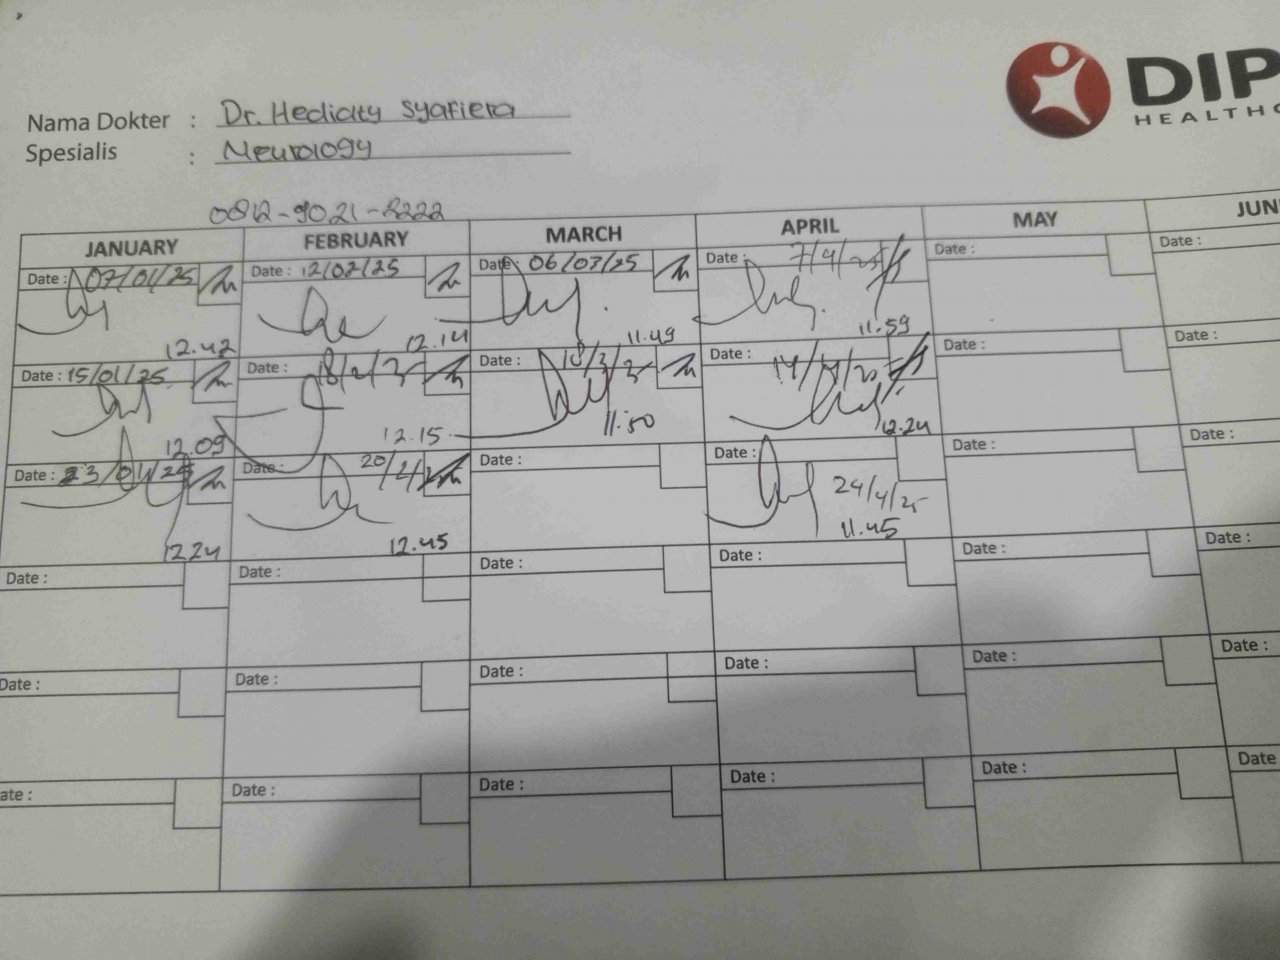 DIP
HEALTHC
Nama Dokter : Dr. Hedicity Syafiera
Spesialis : Neurology
0812-9021-2222
JANUARY FEBRUARY MARCH APRIL MAY JUN
Date : 07/01/25 Date : 12/02/25 Date : 06/03/25 Date : 7/4/25 Date : Date :
12.42 12.14 11.49 11.59
Date : 15/01/25 Date : 18/2/25 Date : 18/3/25 Date : 14/4/25 Date : Date :
12.09 12.15 11.50 12.24
Date : 23/01/25 Date : 20/2/25 Date : Date : 24/4/25 Date : Date :
12.24 12.45 11.45
Date : Date : Date : Date : Date : Date :
Date : Date : Date : Date : Date : Date :
ate : Date : Date : Date : Date : Date